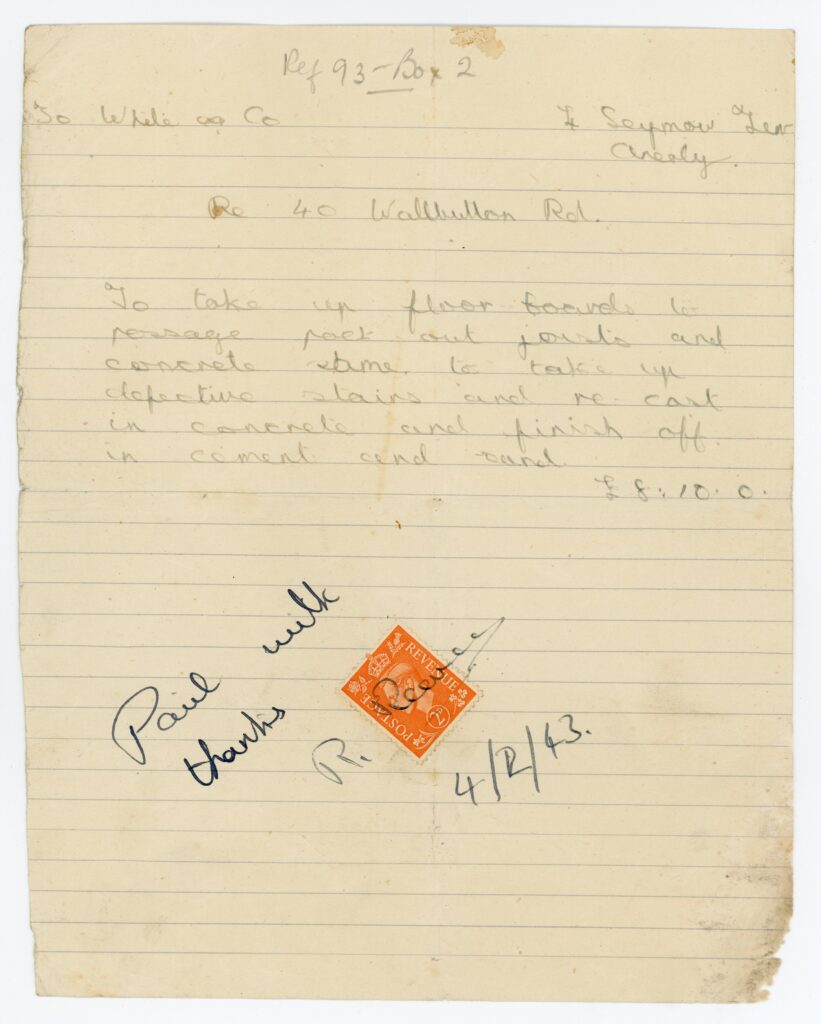 Ref 93 - Box 2
To White & Co
7 Seymour Ter
Anerly.
Re 40 Wallbutton Rd.
To take up floor boards to
passage pack out joists and
concrete same. to take up
defective stairs and re-cast
in concrete and finish off.
in cement and sand
£ 8. 10. 0.
Paid with
thanks
REVENUE
POSTAGE
R.
4/12/43.